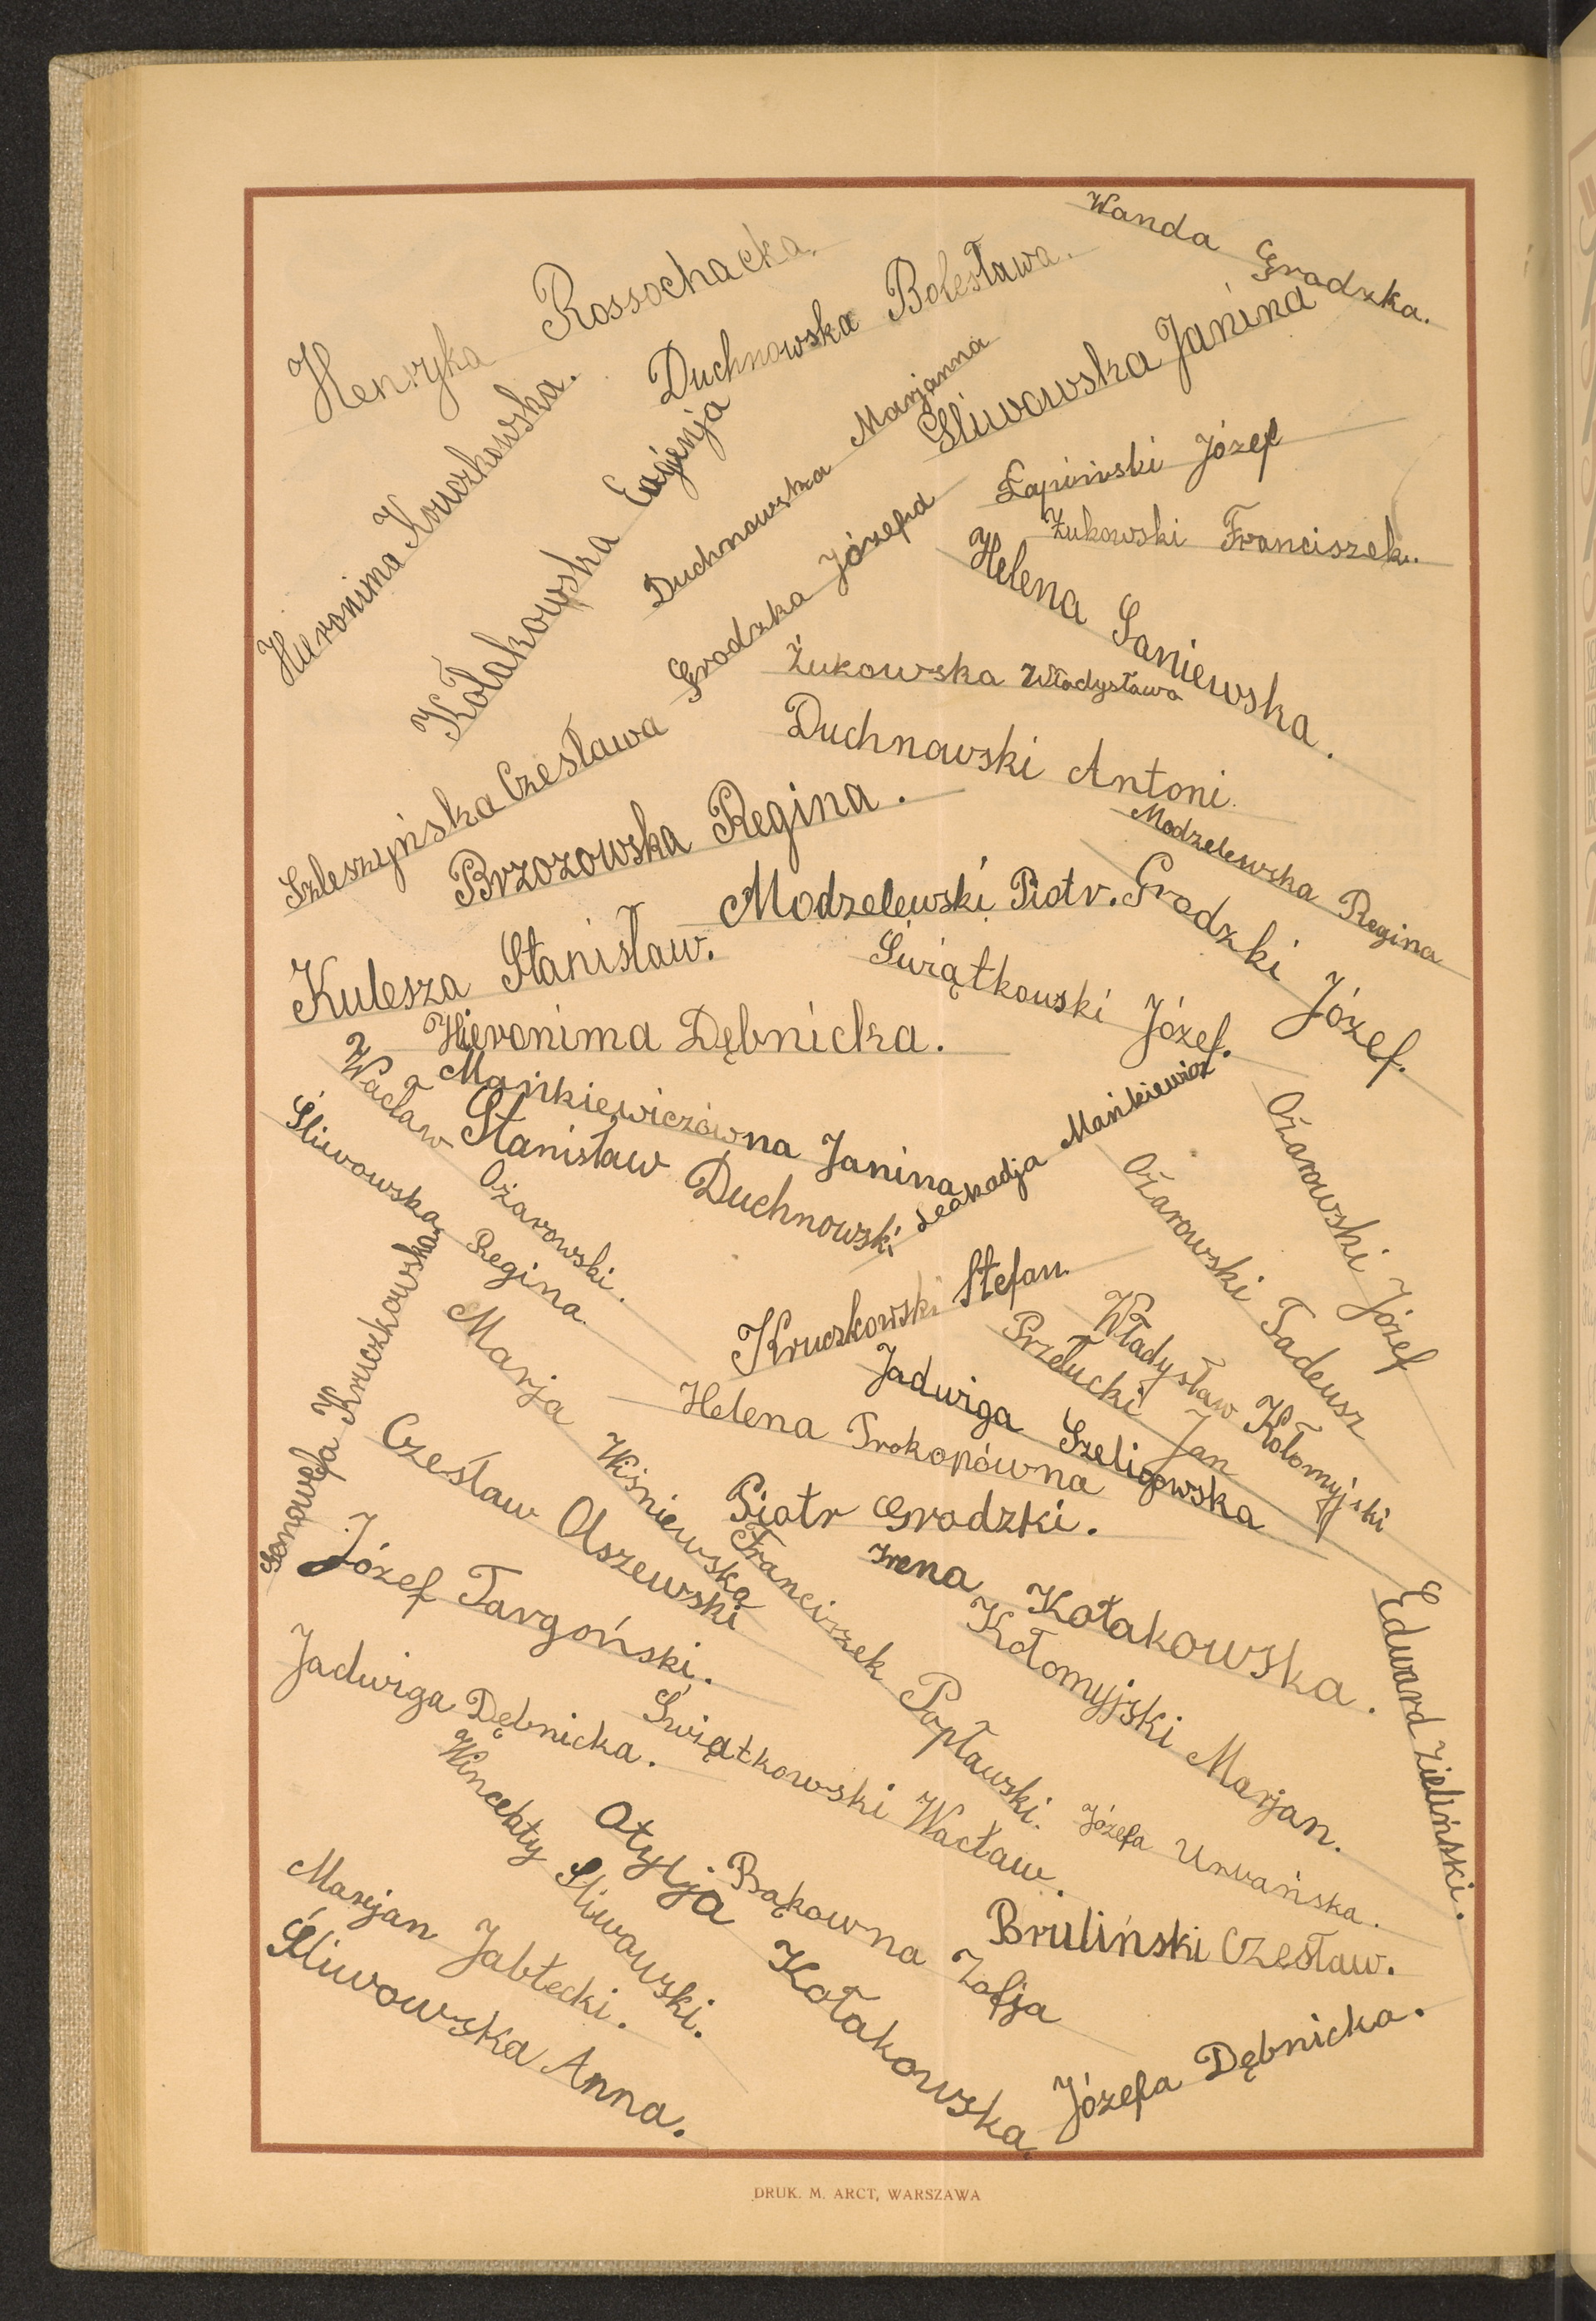 Wanda Grodzka.
Henryka Rossochacka.
Duchnowska Bolesława.
Hieronima Kruczkowska.
Kołakowska Eugienja
Duchnowska Marjanna
Śliwowska Janina
Łapiński Józef
Żukowski Franciszek.
Grodzka Józefa
Helena Saniewska.
Żukowska Władysława
Szleszyńska Czesława
Duchnowski Antoni.
Brzozowska Regina.
Modzelewska Regina
Modzelewski Piotr.
Grodzki Józef.
Kulesza Stanisław.
Świątkowski Józef.
Hieronima Dębnicka.
Mańkiewiczówna Janina
Wacław Ożarowski.
Stanisław Duchnowski
Leokadja Mańkiewicz
Śliwowska Regina.
Ożarowski Józef
Ożarowski Tadeusz
Kruczkowski Stefan.
Kruczkowska
Marja Wiśniewska
Władysław Kołomyjski
Przełucki Jan
Jadwiga Szeligowska
Helena Prokopówna
Czesław Olszewski
Piotr Grodzki.
Józef Targoński.
Franciszek Popławski.
Irena Kołakowska.
Kołomyjski Marjan.
Edward Zieliński.
Jadwiga Dębnicka.
Świątkowski Wacław.
Wincenty Śliwowski.
Józefa Urvańska.
Otylja Kołakowska.
Bąkowna Zofja
Bruliński Czesław.
Marjan Jabłecki.
Śliwowska Anna.
Józefa Dębnicka.
DRUK. M. ARCT, WARSZAWA